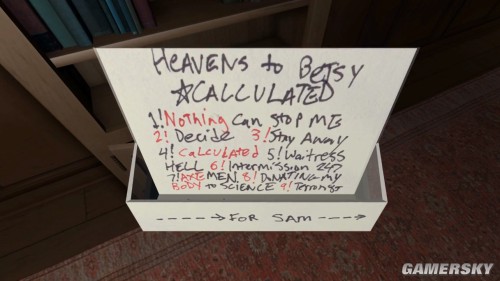 HEAVENS to BETSY
☆CALCULATED
1! Nothing Can STOP ME
2! Decide 3! Stay Away
4! CALCULATED 5! Waitress
HELL 6! Intermission 247
7! AXEMEN 8! DONATING my
BODY to SCIENCE 9! Terrorist
----→ FOR SAM ---→
GAMERSKY